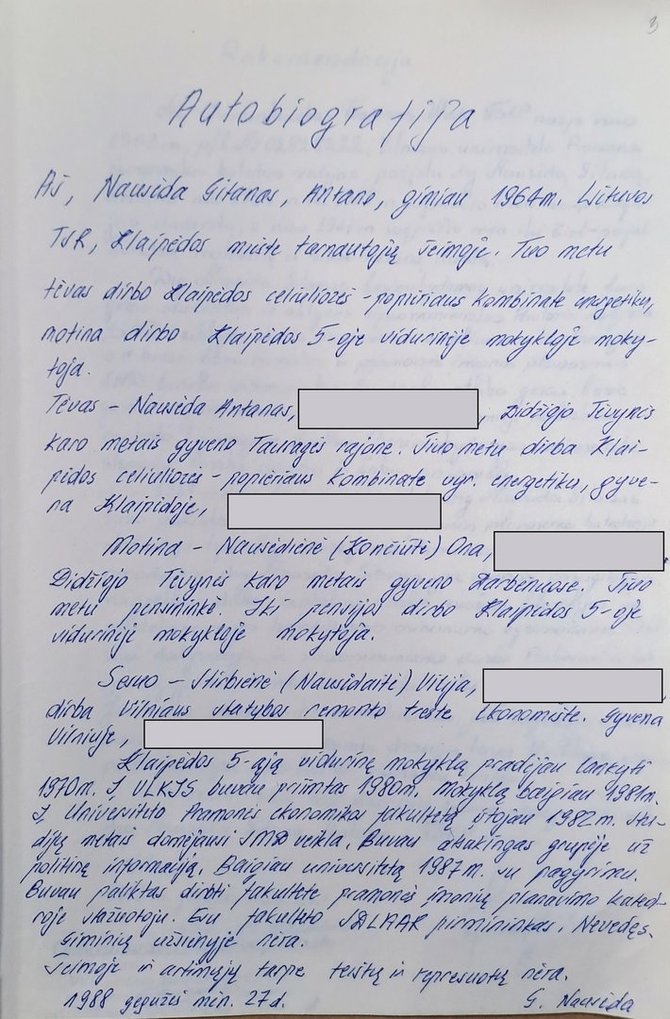 3
Autobiografija
Aš, Nausėda Gitanas, Antano, gimiau 1964m. Lietuvos
TSR, Klaipėdos mieste tarnautojų šeimoje. Tuo metu
tėvas dirbo Klaipėdos celiuliozės-popieriaus kombinate energetiku,
motina dirbo Klaipėdos 5-oje vidurinėje mokykloje moky-
toja.
Tėvas – Nausėda Antanas, , Didžiojo Tėvynės
karo metais gyveno Tauragės rajone. Šiuo metu dirba Klai-
pėdos celiuliozės-popieriaus kombinate vyr. energetiku, gyve-
na Klaipėdoje,
Motina – Nausėdienė (Končiūtė) Ona,
Didžiojo Tėvynės karo metais gyveno Darbėnuose. Šiuo
metu pensininkė. Iki pensijos dirbo Klaipėdos 5-oje
vidurinėje mokykloje mokytoja.
Sesuo – Stirbienė (Nausėdaitė) Vilija,
dirba Vilniaus statybos remonto treste ekonomiste. Gyvena
Vilniuje,
Klaipėdos 5-ąją vidurinę mokyklą pradėjau lankyti
1970m. Į VLKJS buvau priimtas 1980m. Mokyklą baigiau 1981m.
Į Universiteto Pramonės ekonomikos fakultetą įstojau 1982m. Stu-
dijų metais domėjausi SMD veikla. Buvau atsakingas grupėje už
politinę informaciją. Baigiau universitetą 1987m. su pagyrimu.
Buvau paliktas dirbti fakultete pramonės įmonių planavimo kated-
roje stažuotoju. Esu fakulteto SDLAAR pirmininkas. Nevedęs.
Giminių užsienyje nėra.
Šeimoje ir artimųjų tarpe teistų ir represuotų nėra.
1988 gegužės mėn. 27d. G. Nausėda